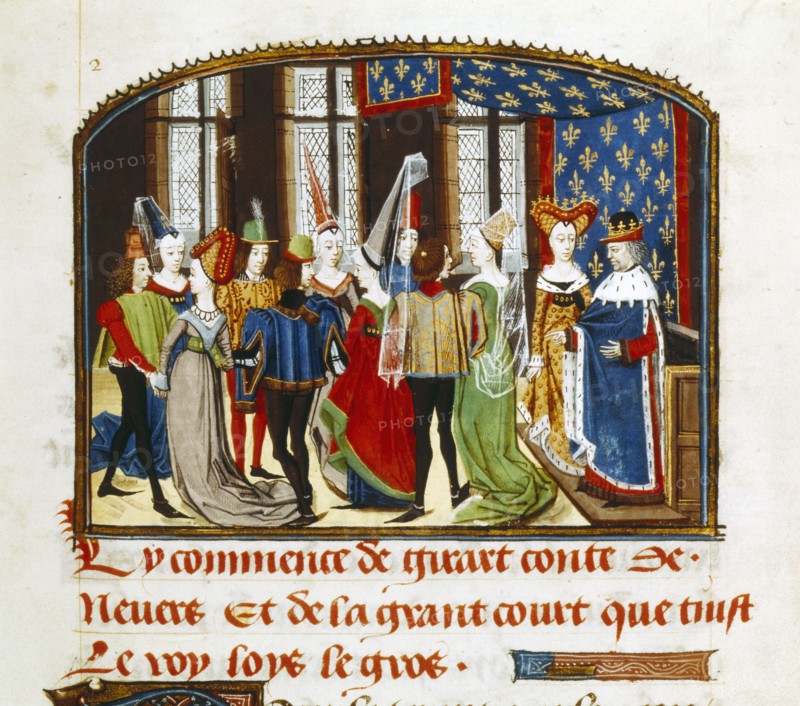 2
Cy commence de girart conte de.
Nevers Et de la grant court que tinst
Le roy loys le gros.
PHOTO12